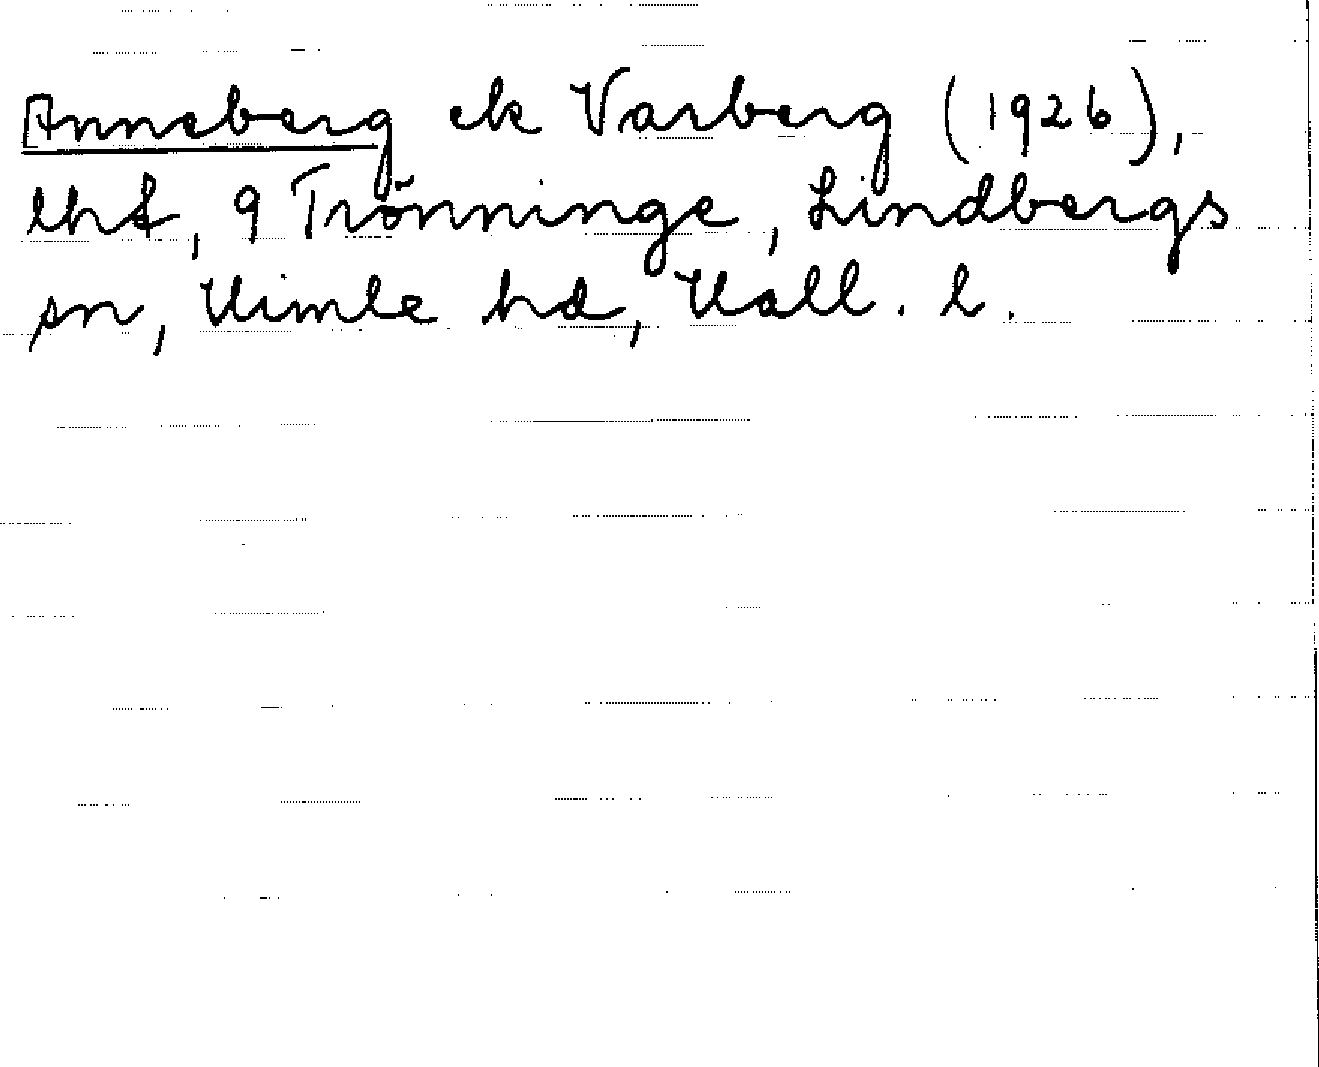 Anneberg ek Varberg (1926),
lht, 9 Trönninge, Lindbergs
sn, Himle hd, Hall. l.